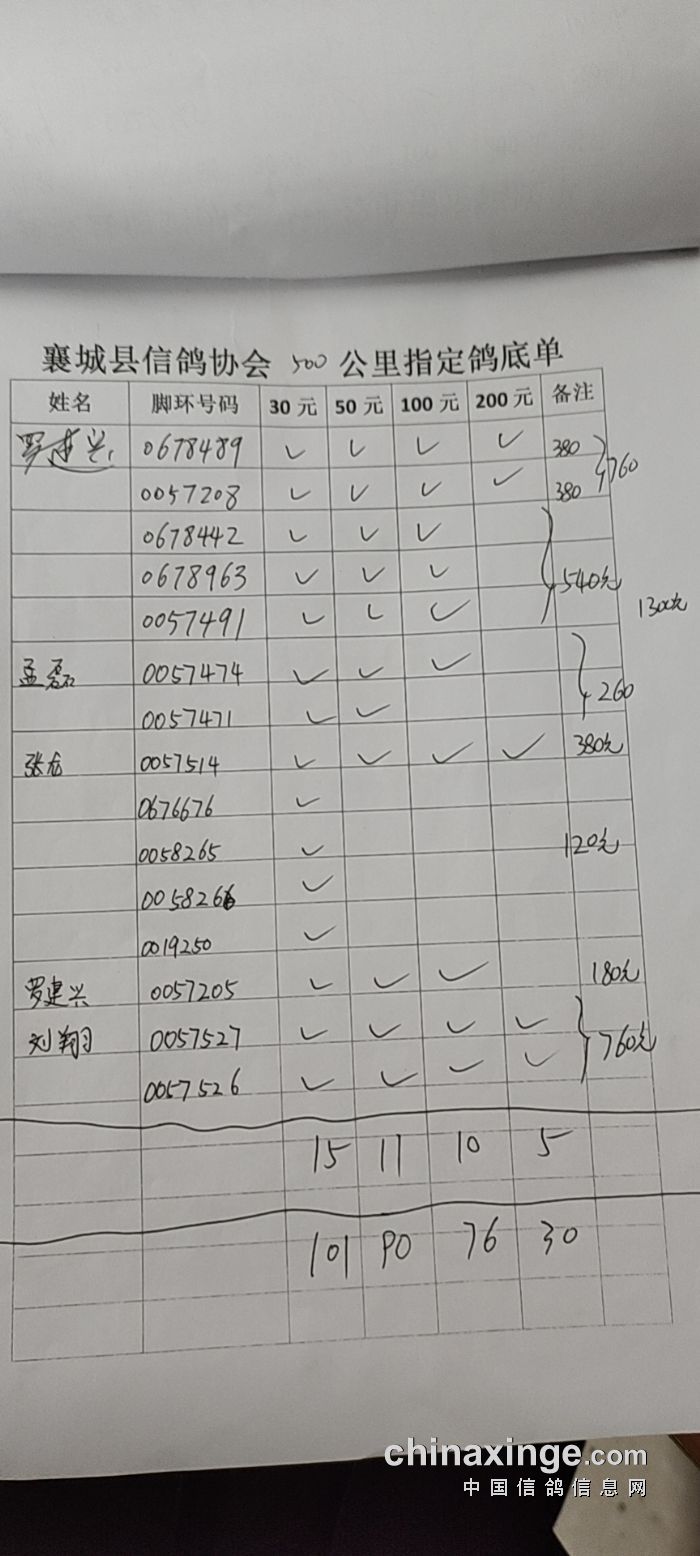 襄城县信鸽协会 500 公里指定鸽底单
姓名 脚环号码 30元 50元 100元 200元 备注
罗建兴 0678489 ✓ ✓ ✓ ✓ 380
0057208 ✓ ✓ ✓ ✓ 380 760
0678442 ✓ ✓ ✓
0678963 ✓ ✓ ✓ 540元
0057491 ✓ ✓ ✓ 1300元
孟磊 0057474 ✓ ✓ ✓
0057471 ✓ ✓ 260
张龙 0057514 ✓ ✓ ✓ ✓ 380元
0676676 ✓
0058265 ✓ 120元
0058266 ✓
0019250 ✓
罗建兴 0057205 ✓ ✓ ✓ 180元
刘翔 0057527 ✓ ✓ ✓ ✓ 760元
0057526 ✓ ✓ ✓ ✓
15 11 10 5
101 90 76 30
chinaxinge.com
中国信鸽信息网